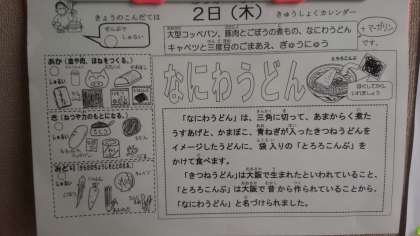 きょうのこんだては
2日(木)
きゅうしょくカレンダー
ぜんぶで
しゅるい
大型コッペパン、豚肉とごぼうの煮もの、なにわうどん
キャベツと三度豆のごまあえ、ぎゅうにゅう
+マーガリン
です。
あか(血や肉、ほねをつくる。)
しゅるい
き(ねつや力のもとになる。)
しゅるい
みどり(からだのちょうしをととのえる。)
しゅるい
なにわうどん
とろろこんぶ
「なにわうどん」は、三角に切って、あまからく煮た
うすあげと、かまぼこ、青ねぎが入ったきつねうどんを
イメージしたうどんに、袋入りの「とろろこんぶ」を
かけて食べます。
「きつねうどん」は大阪で生まれたといわれていること、
「とろろこんぶ」は大阪で昔から作られていることから、
「なにわうどん」と名づけられました。